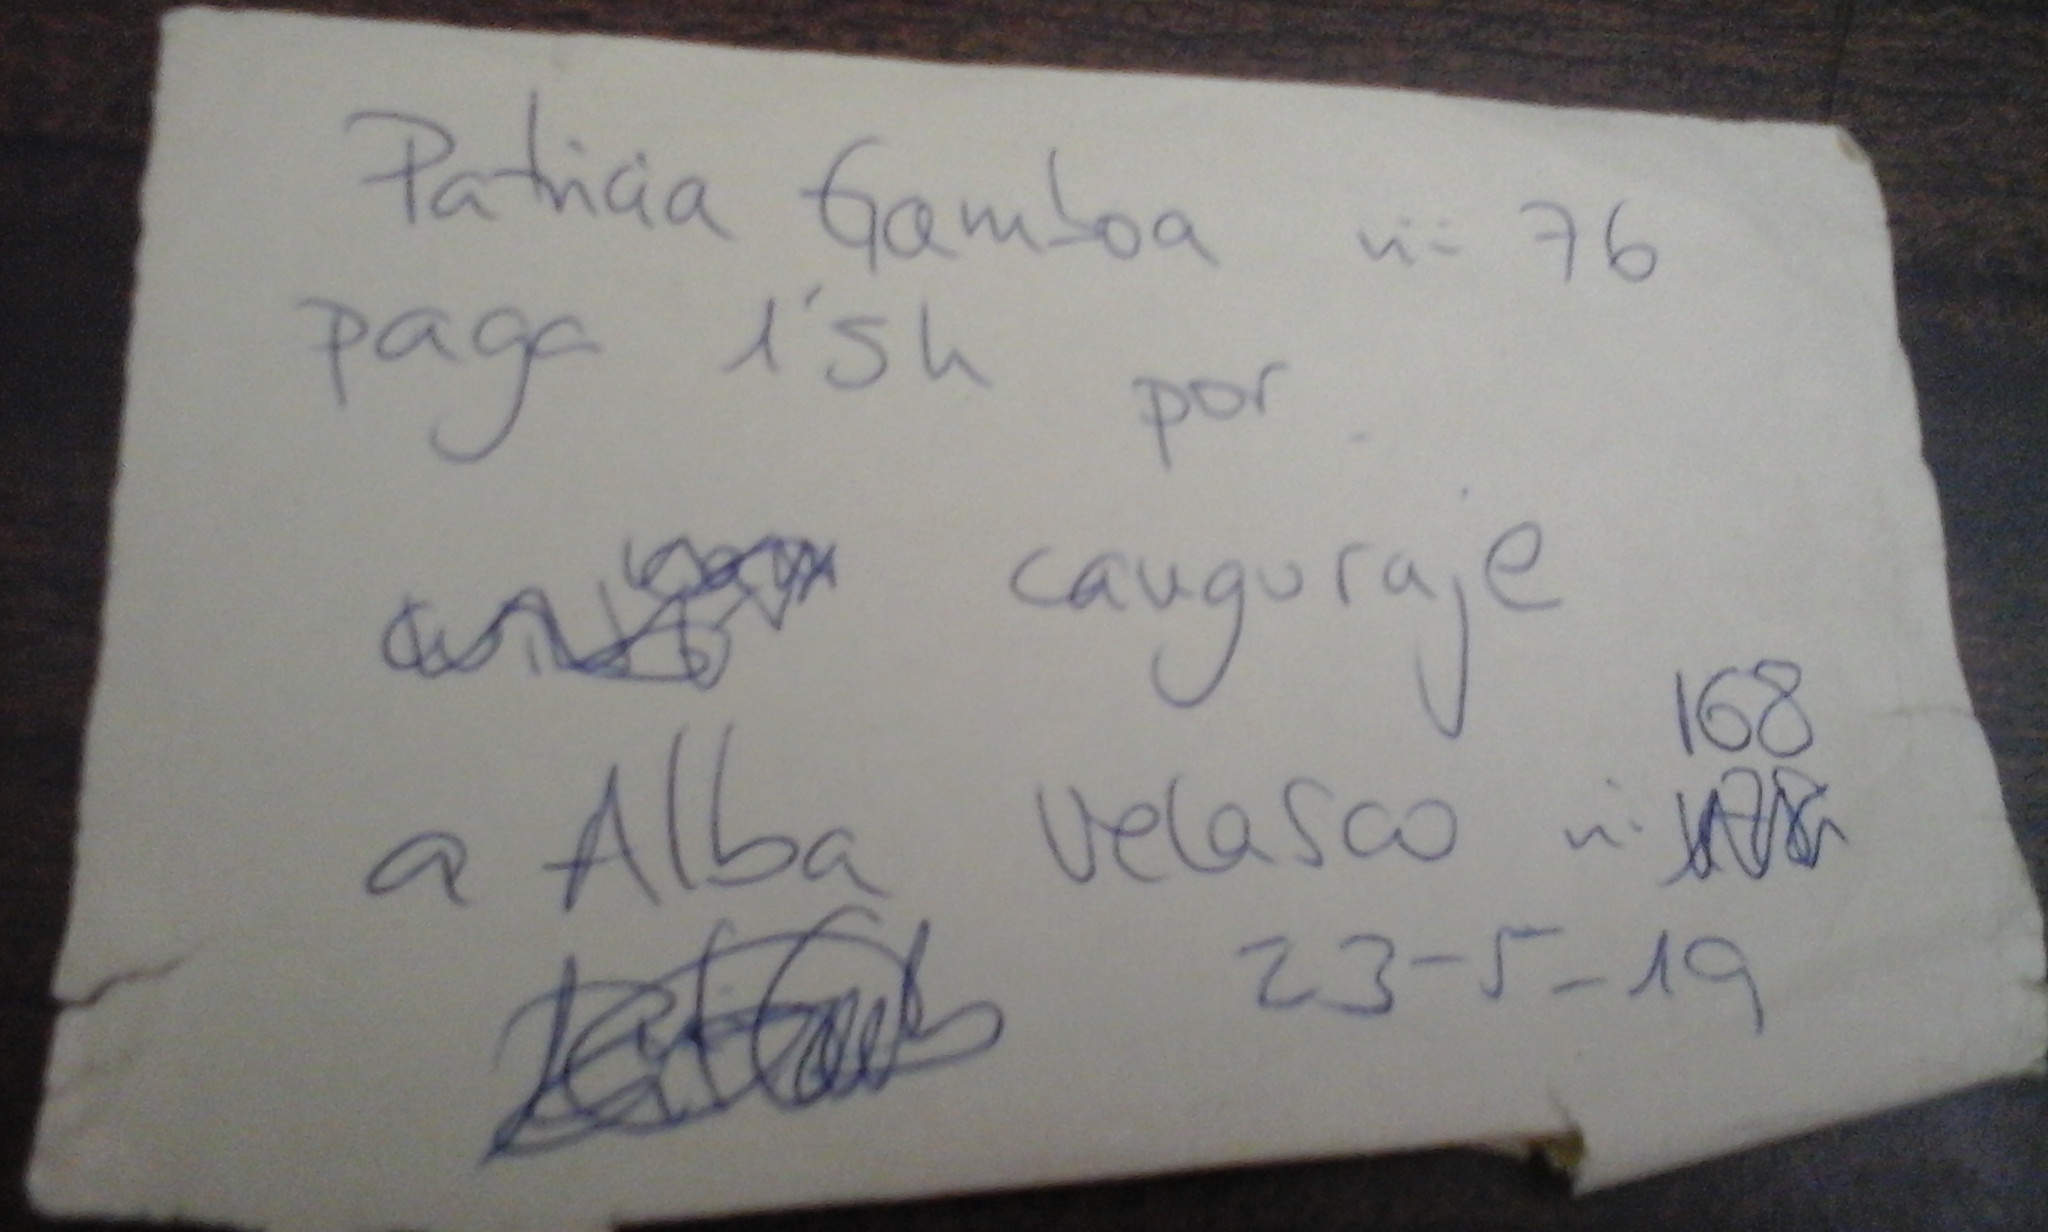 Patricia Gamboa nº 76
paga 1'5h por
canguraje
168
a Alba Velasco nº
23-5-19